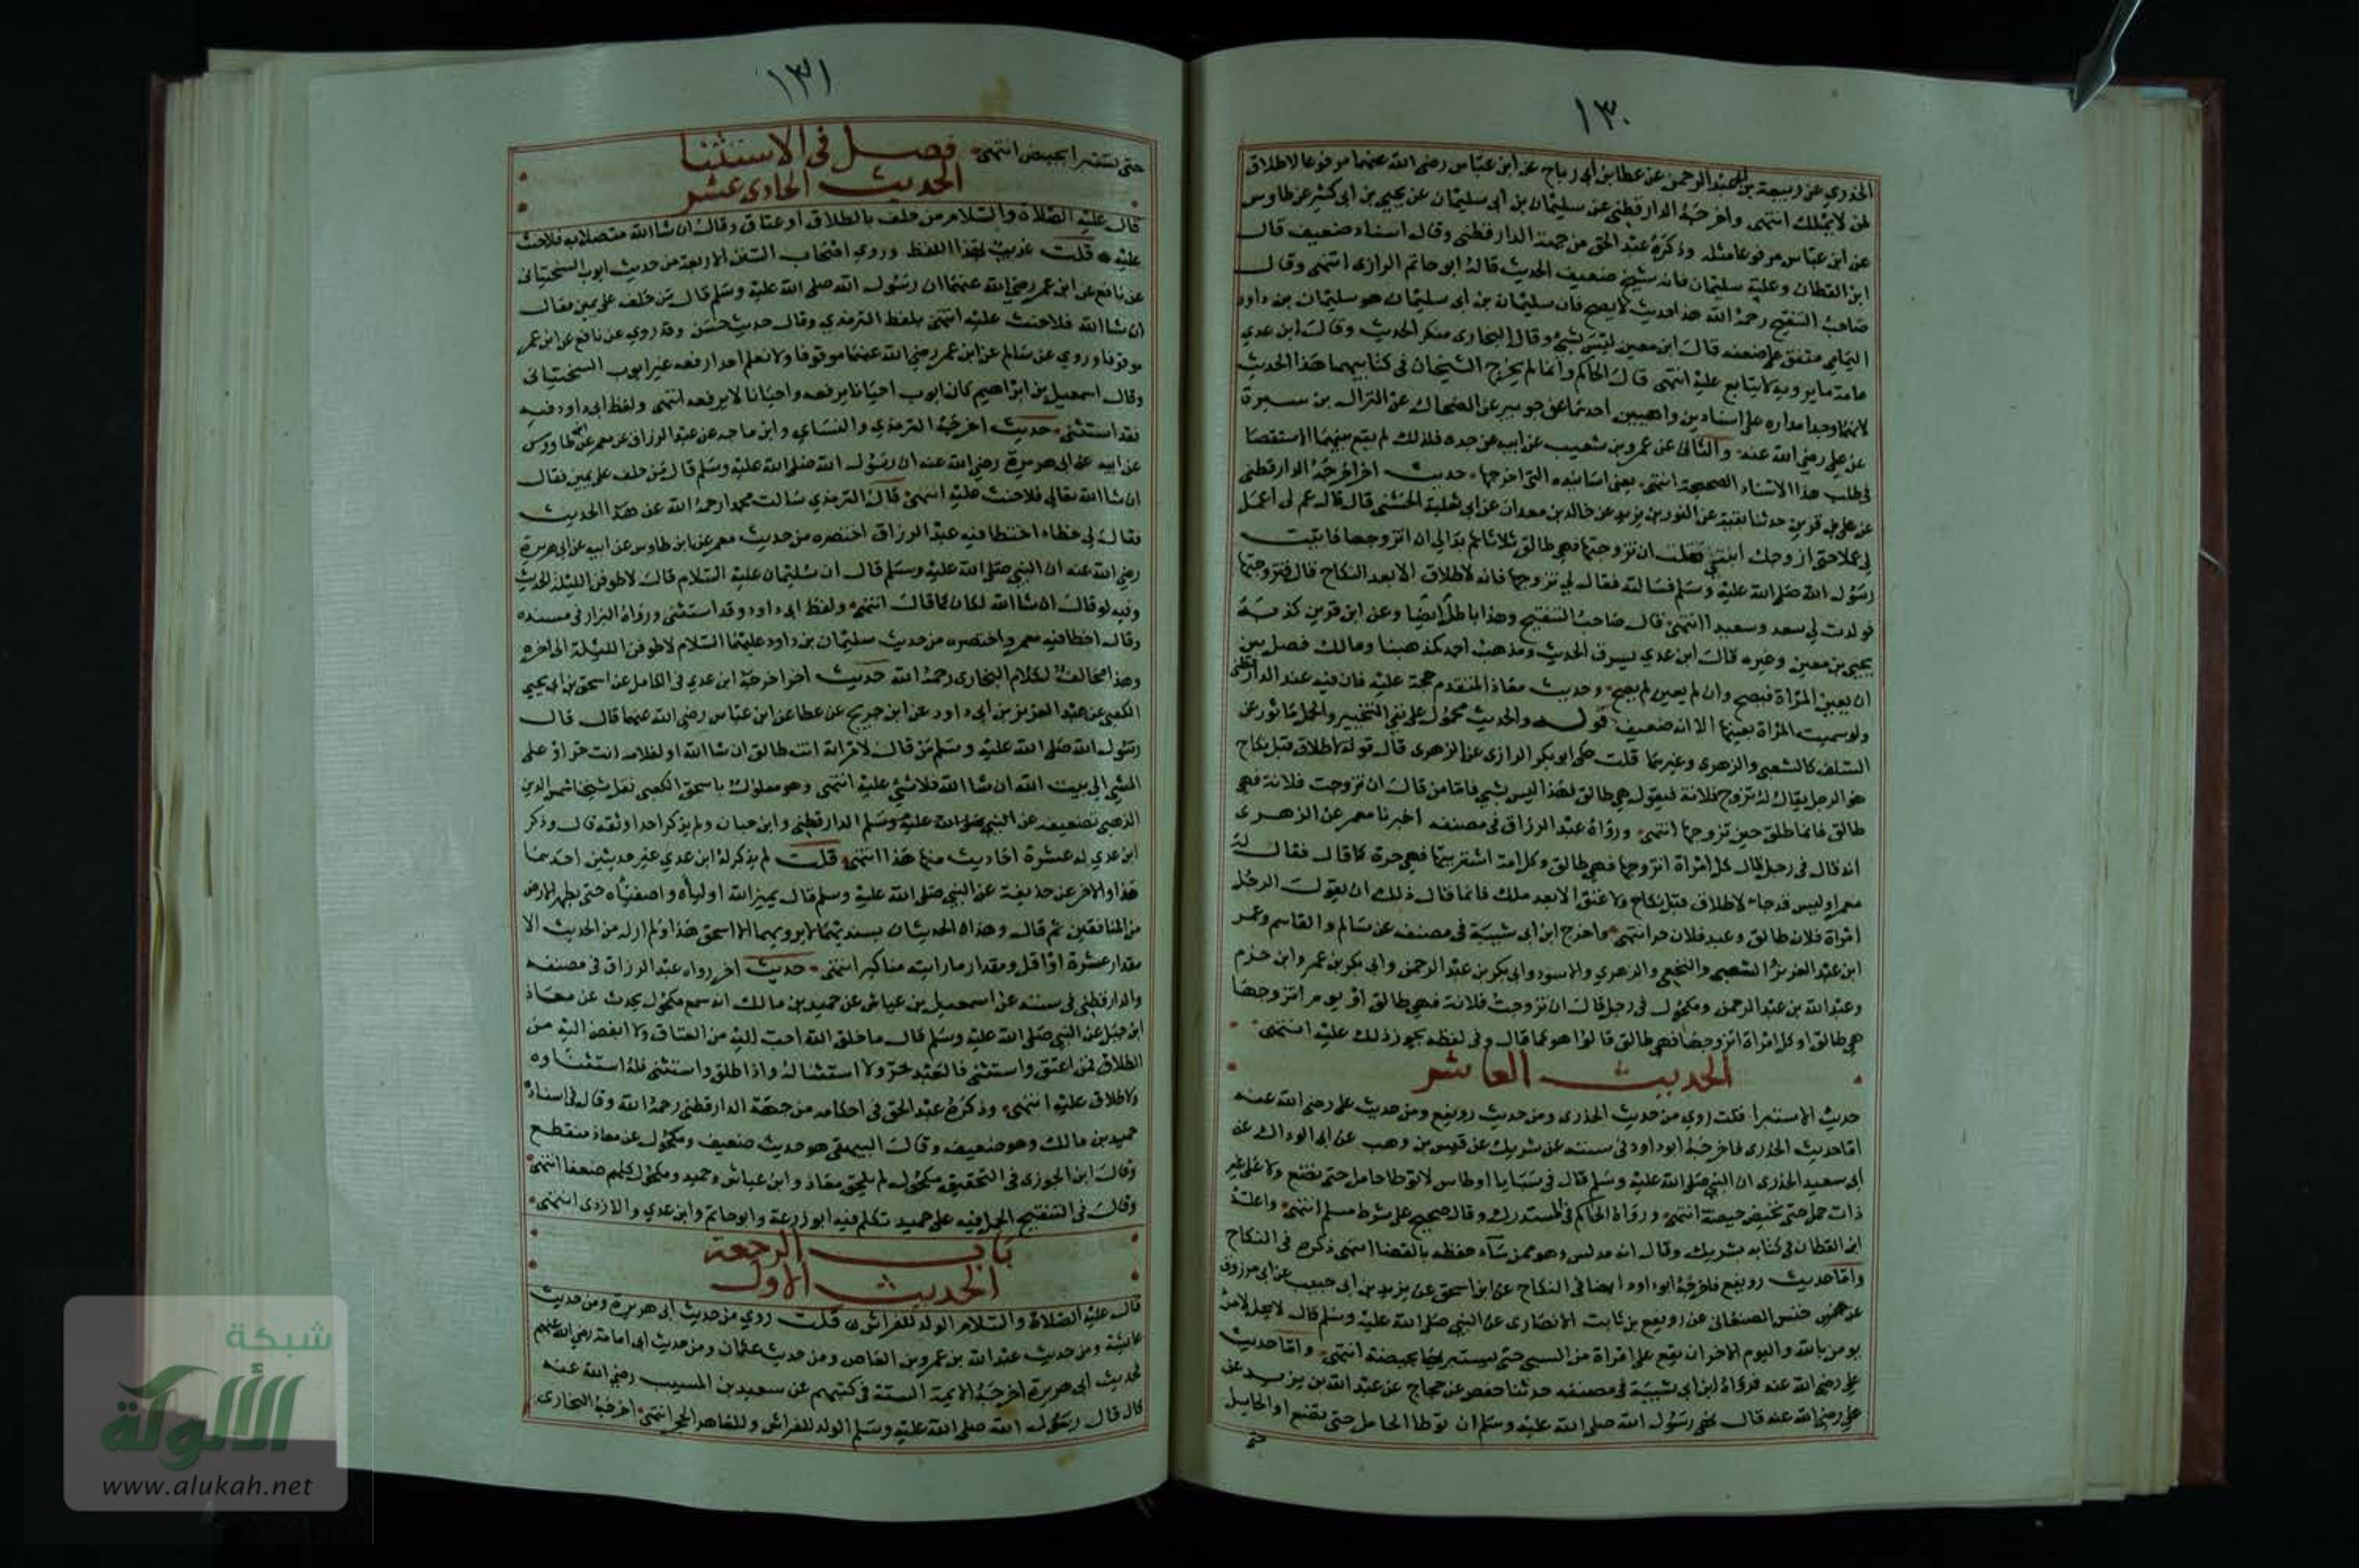 ١٣٠
الخدري عن ربيعة بن عبد الرحمن عن عطا بن أبي رباح عن ابن عباس رضي الله عنهما مرفوعا لاطلاق
لمن لا يملك انتهى واخرجه الدارقطني عن سليمان بن أبي سليمان عن يحيى بن ابي كثير عن طاوس
عن ابن عباس مرفوعا مثله وذكره عبد الحق من جهة الدارقطني وقال اسناده ضعيف قال
ابن القطان وعليه سليمان فانه شيخ ضعيف الحديث قاله ابو حاتم الرازي انتهى وقال
صاحب التنقيح رحمه الله هذا حديث لا يصح فان سليمان بن أبي سليمان هو سليمان بن داود
اليمامي متفق على ضعفه قال ابن معين ليس بشئ وقال البخاري منكر الحديث وقال ابن عدي
عامة ما يرويه لا يتابع عليه انتهى قال الحاكم وانما لم يخرج الشيخان في كتابيهما هذا الحديث
لانهما وجدا مداره على اسنادين واهيين احدهما عن جويبر عن الضحاك عن النزال بن سبرة
عن علي رضي الله عنه والثاني عن عمرو بن شعيب عن ابيه عن جده فلذلك لم يقع منهما الاستقصا
في طلب هذا الاسناد الصحيحة انتهى يعني اسانيده التي اخرجها حديث اخر اخرجه الدارقطني
عن علي بن قرين حدثنا بقية عن ثور بن يزيد عن خالد بن معدان عن ابي ثعلبة الخشني قال قال عم لي اعمل
لي عملا حتى ازوجك ابنتي فقلت ان تزوجتها فهي طالق ثلاثا ثم بدا لي ان اتزوجها فاتيت
رسول الله صلى الله عليه وسلم فسالته فقال لي تزوجها فانه لاطلاق الا بعد النكاح قال فتزوجتها
فولدت لي سعد وسعيدا انتهى قال صاحب التنقيح وهذا باطل ايضا وعلي بن قرين كذبه
يحيى بن معين وغيره قال ابن عدي يسرق الحديث ومذهب احمد كمذهبنا ومالك فصل بين
ان يعين المراة فيصح وان لم يعين لم يصح وحديث معاذ المتقدم حجة عليه فان فيه عند الدارقطني
ولو سميت المراة بعينها الا انه ضعيف قوله والحديث محمول على نفي التنجيز والحمل ماثور عن
السلف كالشعبي والزهري وغيرهما قلت حكى ابو بكر الرازي عن الزهري قال قوله لاطلاق قبل نكاح
هو الرجل يقال له تزوج فلانة فيقول هي طالق فهذا ليس بشي فاما من قال ان تزوجت فلانة فهي
طالق فانما طلق حين تزوجها انتهى ورواه عبد الرزاق في مصنفه اخبرنا معمر عن الزهري
انه قال في رجل قال كل امراة اتزوجها فهي طالق وكل امة اشتريتها فهي حرة كما قال فقال له
معمر اوليس قد جاء لاطلاق قبل نكاح ولا عتق الا بعد ملك قال انما ذلك ان يقول الرجل
امراة فلان طالق وعبد فلان حر انتهى واخرج ابن ابي شيبة في مصنفه عن سالم والقاسم وعمر
ابن عبد العزيز والشعبي والنخعي والزهري والاسود وابي بكر بن عبد الرحمن وابي بكر بن عمرو بن حزم
وعبد الله بن عبد الرحمن ومكحول في رجل قال ان تزوجت فلانة فهي طالق او يوم اتزوجها
هي طالق او كل امراة اتزوجها فهي طالق قالوا هو كما قال وفي لفظ يجوز ذلك عليه انتهى
الحديث العاشر
حديث الاستبرا قلت روي من حديث الخدري ومن حديث رويفع ومن حديث علي رضي الله عنه
اما حديث الخدري فاخرجه ابو داود في سننه عن شريك عن قيس بن وهب عن ابي الوداك عن
ابي سعيد الخدري ان النبي صلى الله عليه وسلم قال في سبايا اوطاس لا توطا حامل حتى تضع ولا غير
ذات حمل حتى تحيض حيضة انتهى ورواه الحاكم في المستدرك وقال صحيح على شرط مسلم انتهى واعله
ابن القطان في كتابه بشريك وقال انه مدلس وهو ممن ساء حفظه بالقضا انتهى ذكره في النكاح
واما حديث رويفع فاخرجه ابو داود ايضا في النكاح عن ابن اسحق عن يزيد بن ابي حبيب عن ابي مرزوق
عن حنش الصنعاني عن رويفع بن ثابت الانصاري عن النبي صلى الله عليه وسلم قال لا يحل لامرئ
يومن بالله واليوم الاخر ان يقع على امراة من السبي حتى يستبريها بحيضة انتهى واما حديث
علي رضي الله عنه فرواه ابن ابي شيبة في مصنفه حدثنا حفص عن حجاج عن عبد الله بن يزيد عن
علي رضي الله عنه قال نهى رسول الله صلى الله عليه وسلم ان توطا الحامل حتى تضع او الحايل
حتى
١٣١
حتى تستبرا بحيض انتهى فصل في الاستثنا
الحديث الحادي عشر
قال عليه الصلاة والسلام من حلف بالطلاق او عتاق وقال ان شا الله متصلا به فلا حنث
عليه قلت غريب بهذا اللفظ وروى اصحاب السنن الاربعة من حديث ايوب السختياني
عن نافع عن ابن عمر رضي الله عنهما ان رسول الله صلى الله عليه وسلم قال من حلف على يمين فقال
ان شا الله فلا حنث عليه انتهى بلفظ الترمذي وقال حديث حسن وقد روي عن نافع عن ابن عمر
موقوفا وروي عن سالم عن ابن عمر رضي الله عنهما موقوفا ولا نعلم احدا رفعه غير ايوب السختياني
وقال اسمعيل بن ابراهيم كان ايوب احيانا يرفعه واحيانا لا يرفعه انتهى ولفظ ابي داود فيه
فقد استثنى حديث اخرجه الترمذي والنساي وابن ماجه عن عبد الرزاق عن معمر عن ابن طاووس
عن ابيه عن ابي هريرة رضي الله عنه ان رسول الله صلى الله عليه وسلم قال من حلف على يمين فقال
ان شا الله تعالى فلا حنث عليه انتهى قال الترمذي سالت محمدا رحمه الله عن هذا الحديث
فقال لي خطاء اخطا فيه عبد الرزاق اختصره من حديث معمر عن ابن طاوس عن ابيه عن ابي هريرة
رضي الله عنه ان النبي صلى الله عليه وسلم قال ان سليمان عليه السلام قال لاطوفن الليلة الحديث
وفيه لو قال ان شا الله لكان كما قال انتهى ولفظ ابي داود فقد استثنى ورواه البزار في مسنده
وقال اخطا فيه معمر واختصره من حديث سليمان بن داود عليهما السلام لاطوفن الليلة الى اخره
وهذا مخالف لكلام البخاري رحمه الله حديث اخر اخرجه ابن عدي في الكامل عن اسحق بن ابي يحيى
الكعبي عن عبد العزيز بن ابي داود عن ابن جريج عن عطا عن ابن عباس رضي الله عنهما قال قال
رسول الله صلى الله عليه وسلم من قال لامراته انت طالق ان شا الله او لغلامه انت حر او على
المشي الى بيت الله ان شا الله فلا شئ عليه انتهى وهو معلول باسحق الكعبي نقل شيخنا شمس الدين
الذهبي تضعيفه عن الدارقطني وابن حبان ولم يذكر احدا وثقه قال وذكر
ابن عدي له عشرة احاديث منها هذا انتهى قلت لم يذكر له ابن عدي غير حديثين احدهما
هذا والاخر عن حذيفة عن النبي صلى الله عليه وسلم قال يميز الله اولياه واصفياه حتى يطهر الارض
من المنافقين ثم قال وهذان الحديثان بسنديهما لا يرويهما الا اسحق هذا ولم ار له من الحديث الا
مقدار عشرة او اقل ومقدار ما رايته مناكير انتهى حديث اخر رواه عبد الرزاق في مصنفه
والدارقطني في سننه عن اسمعيل بن عياش عن حميد بن مالك انه سمع مكحول يحدث عن معاذ
ابن جبل عن النبي صلى الله عليه وسلم قال ما خلق الله احب اليه من العتاق ولا ابغض اليه من
الطلاق فمن اعتق واستثنى فالعبد حر ولا استثنا له واذا طلق واستثنى فله استثناوه
ولا طلاق عليه انتهى وذكره عبد الحق في احكامه من جهة الدارقطني رحمه الله وقال في اسناده
حميد بن مالك وهو ضعيف وقال البيهقي هو حديث ضعيف ومكحول عن معاذ منقطع
وقال ابن الجوزي في التحقيق مكحول لم يلحق معاذ وابن عياش وحميد ومكحول كلهم ضعفا انتهى
وقال في التنقيح الحمل فيه على حميد تكلم فيه ابو زرعة وابو حاتم وابن عدي والازدي انتهى
باب الرجعة
الحديث الاول
قال عليه الصلاة والسلام الولد للفراش قلت روي من حديث ابي هريرة ومن حديث
عائشة ومن حديث عبد الله بن عمرو بن العاص ومن حديث عثمان ومن حديث ابي امامة رضي الله عنهم
فحديث ابي هريرة اخرجه الايمة الستة في كتبهم عن سعيد بن المسيب رضي الله عنه
قال قال رسول الله صلى الله عليه وسلم الولد للفراش وللعاهر الحجر انتهى اخرجه البخاري
شبكة
الألوكة
www.alukah.net